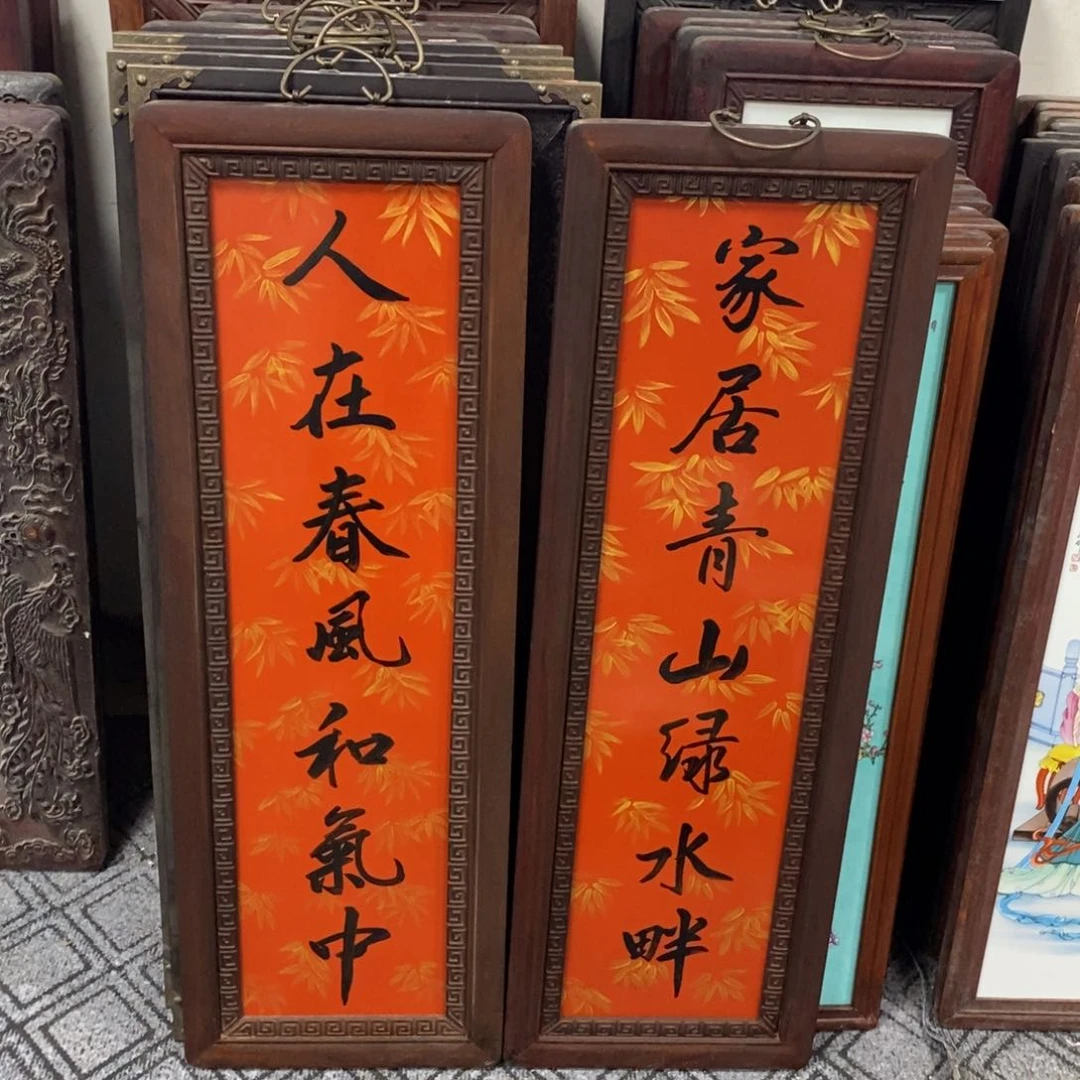 家居青山绿水畔
人在春風和氣中